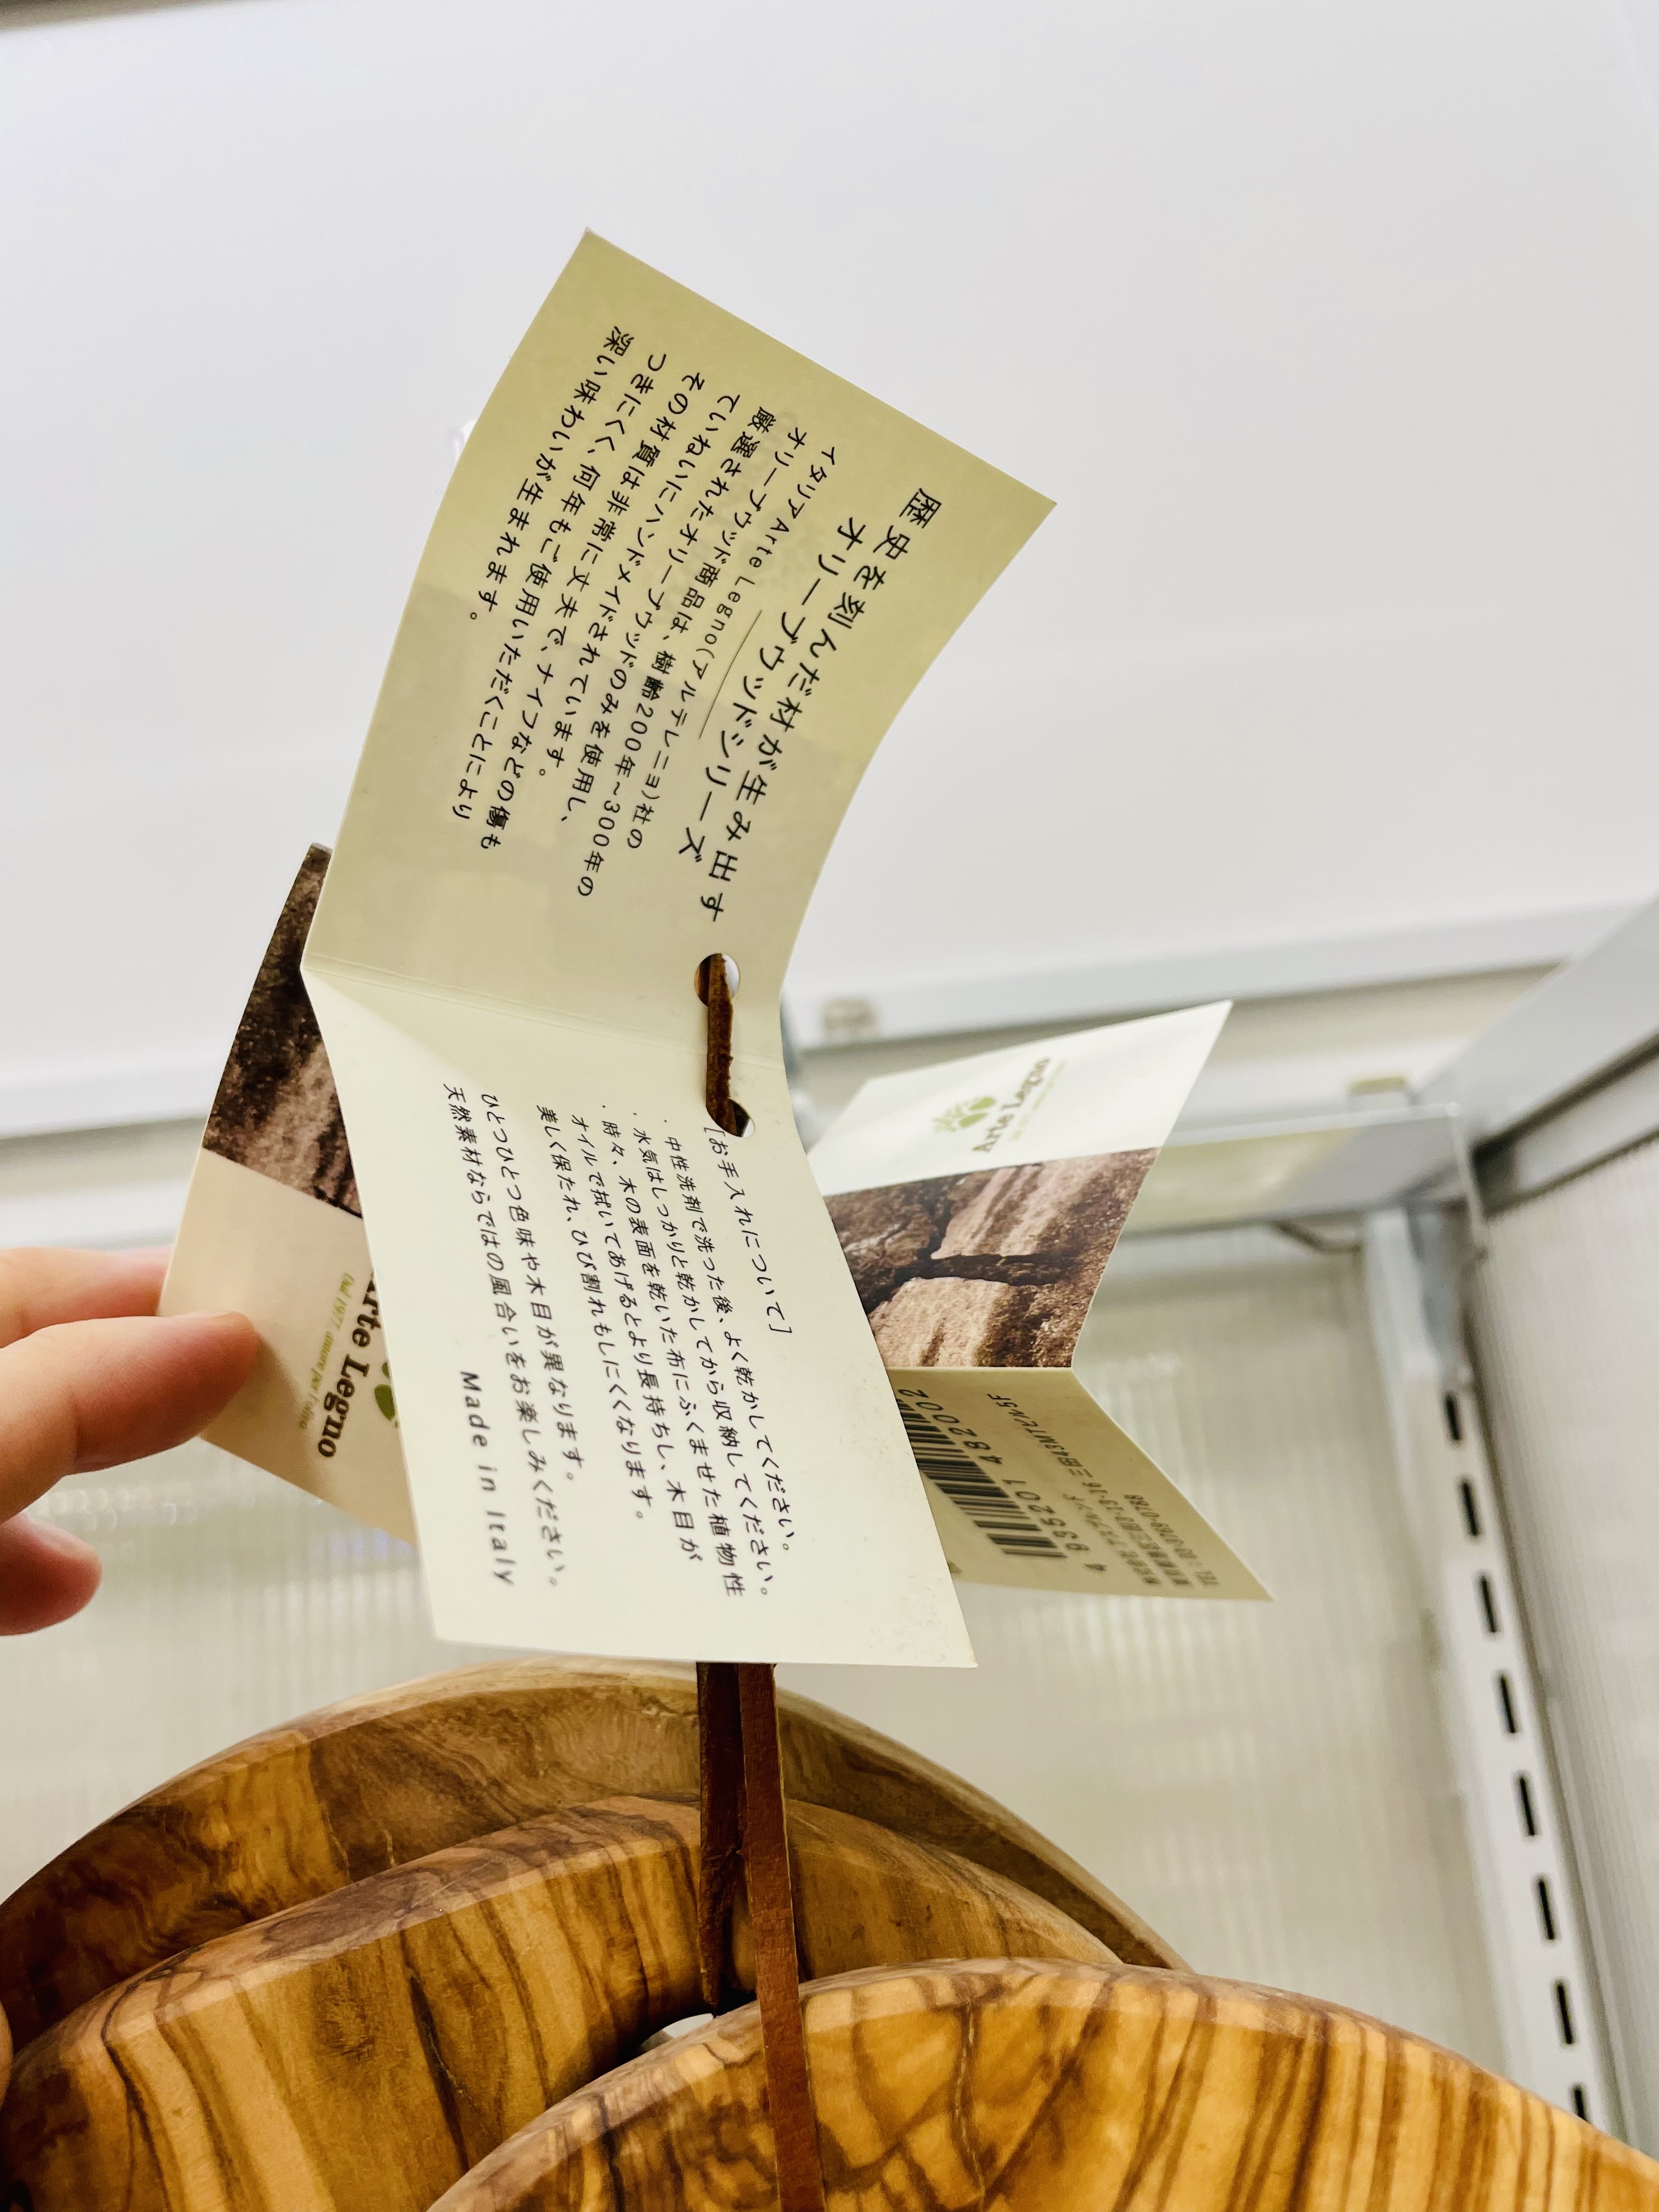 歴史を刻んだ材が生み出す
オリーブウッドシリーズ
イタリアArte Legno(アルテレニョ)社の
オリーブウッド商品は、樹齢200年~300年の
厳選されたオリーブウッドのみを使用し、
ていねいにハンドメイドされています。
その材質は非常に丈夫で、ナイフなどの傷も
つきにくく、何年もご使用いただくことにより
深い味わいが生まれます。
[お手入れについて]
・中性洗剤で洗った後、よく乾かしてください。
・水気はしっかりと乾かしてから収納してください。
・時々、木の表面を乾いた布にふくませた植物性
オイルで拭いてあげるとより長持ちし、木目が
美しく保たれ、ひび割れもしにくくなります。
ひとつひとつ色味や木目が異なります。
天然素材ならではの風合いをお楽しみください。
Made in Italy
Arte Legno
Dal 1977 amore per l'olivo
Arte Legno
4 955201 482002
三田43MTビル5F
TEL：03-3769-0788